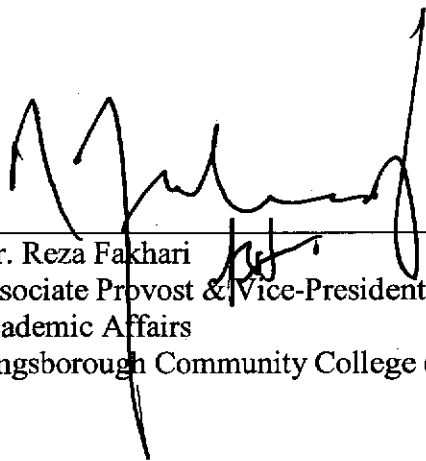 r. Reza Fakhari
ssociate Provost & Vice-President
ademic Affairs
ngsborough Community College (